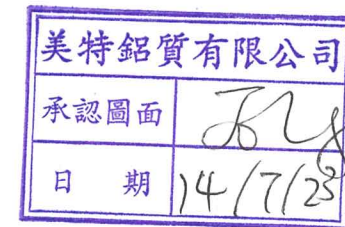 美特鋁質有限公司
承認圖面
日 期 14/7/23